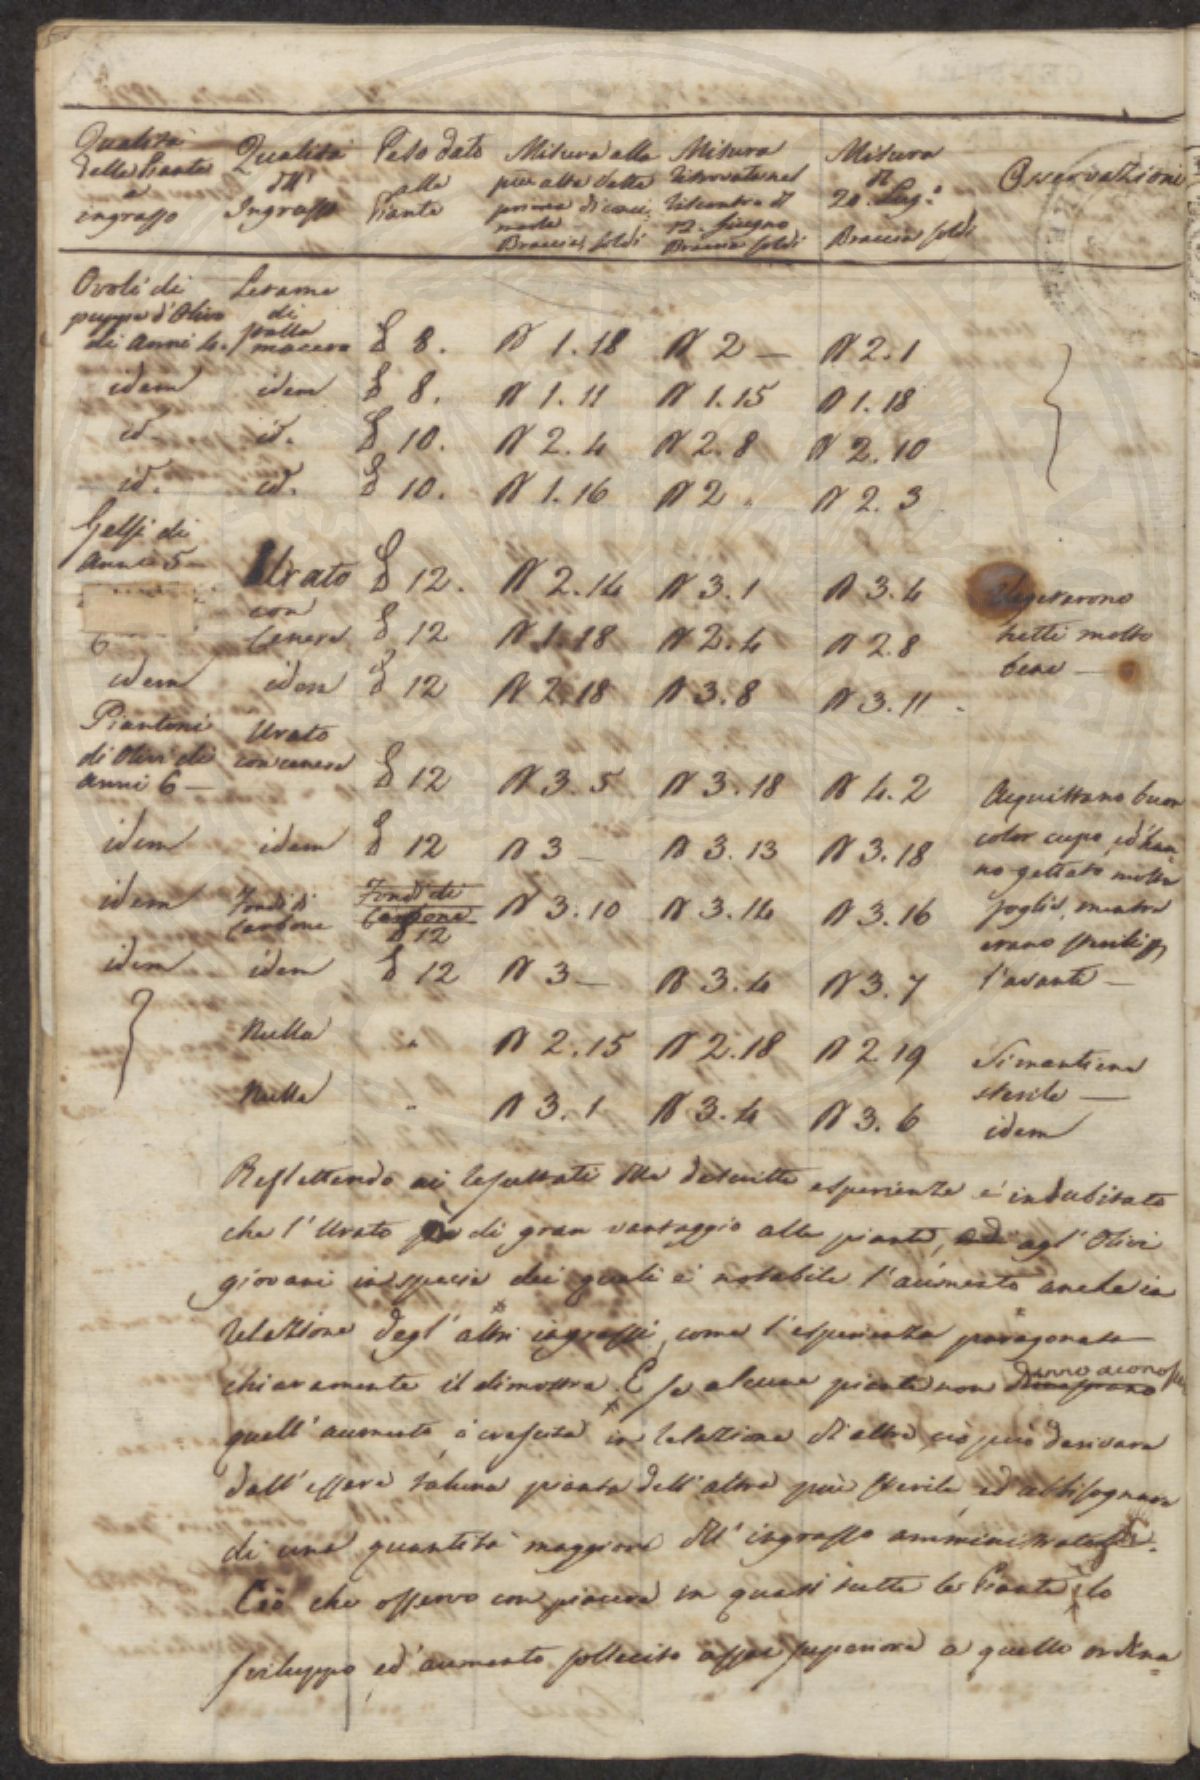 Qualità delle Piante a ingrasso | Qualità dell' Ingrasso | Peso dato alla Pianta | Misura alla più alta Vetta prima di conci:marle Braccia, soldi | Misura ritrovata nel riscontro di 12. Giugno Braccia soldi | Misura di 20. Lug.o Braccia soldi | Osservazioni
Ovoli di puppe d'Olivo di Anni 4. | Letame di stalla macero | £ 8. | N 1.18 | N 2 — | N 2.1
idem | idem | £ 8. | N 1.11 | N 1.15 | N 1.18
id. | id. | £ 10. | N 2.4 | N 2.8 | N 2.10
id. | id. | £ 10. | N 1.16 | N 2 . | N 2.3
Gelsi di Anni 5 — | Urato | £ 12. | N 2.14 | N 3.1 | N 3.4 | Vegetarono
6 | con Cenere | £ 12 | N 1.18 | N 2.4 | N 2.8 | tutti molto bene —
idem | idem | £ 12 | N 2.18 | N 3.8 | N 3.11
Piantoni di Olivi di anni 6 — | Urato con cenere | £ 12 | N 3.5 | N 3.18 | N 4.2 | Acquistano buon
idem | idem | £ 12 | N 3 — | N 3.13 | N 3.18 | color cupo, ed han=no gettato molte
idem | Fondi di Carbone | Fondi di Carbone £ 12 | N 3.10 | N 3.14 | N 3.16 | foglie, mentre erano sterili p
idem | idem | £ 12 | N 3 — | N 3.4 | N 3.7 | l'avanti —
Nulla | " | N 2.15 | N 2.18 | N 2.19 | Si mantiene sterile —
Nulla | " | N 3.1 | N 3.4 | N 3.6 | idem
Reflettendo ai resultati della descritta esperienza è indubitato
che l'Urato è di gran vantaggio alle piante, agl'Olivi
giovani in specie dei quali è notabile l'aumento anche in
relazione degl'altri ingrassi, come l'esperienza paragonata
chiaramente il dimostra. E se alcune piante non
quell'aumento, o crescita in relazione di altre, ciò può derivare
dall'essere taluna pianta dell'altra più sterile, ed abbisognare
di una quantità maggiore dell'ingrasso amministratole.
Ciò che osservo con piacere in quasi tutte le Piante lo
sviluppo, ed aumento sollecito assai superiore a quello ordina=